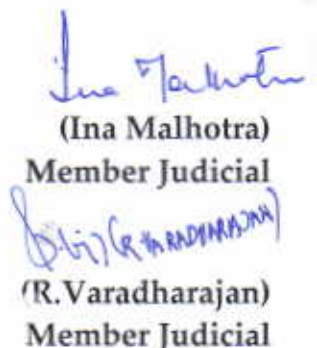 Ina Malhotra
(Ina Malhotra)
Member Judicial
(R VARADHARAJAN)
(R.Varadharajan)
Member Judicial